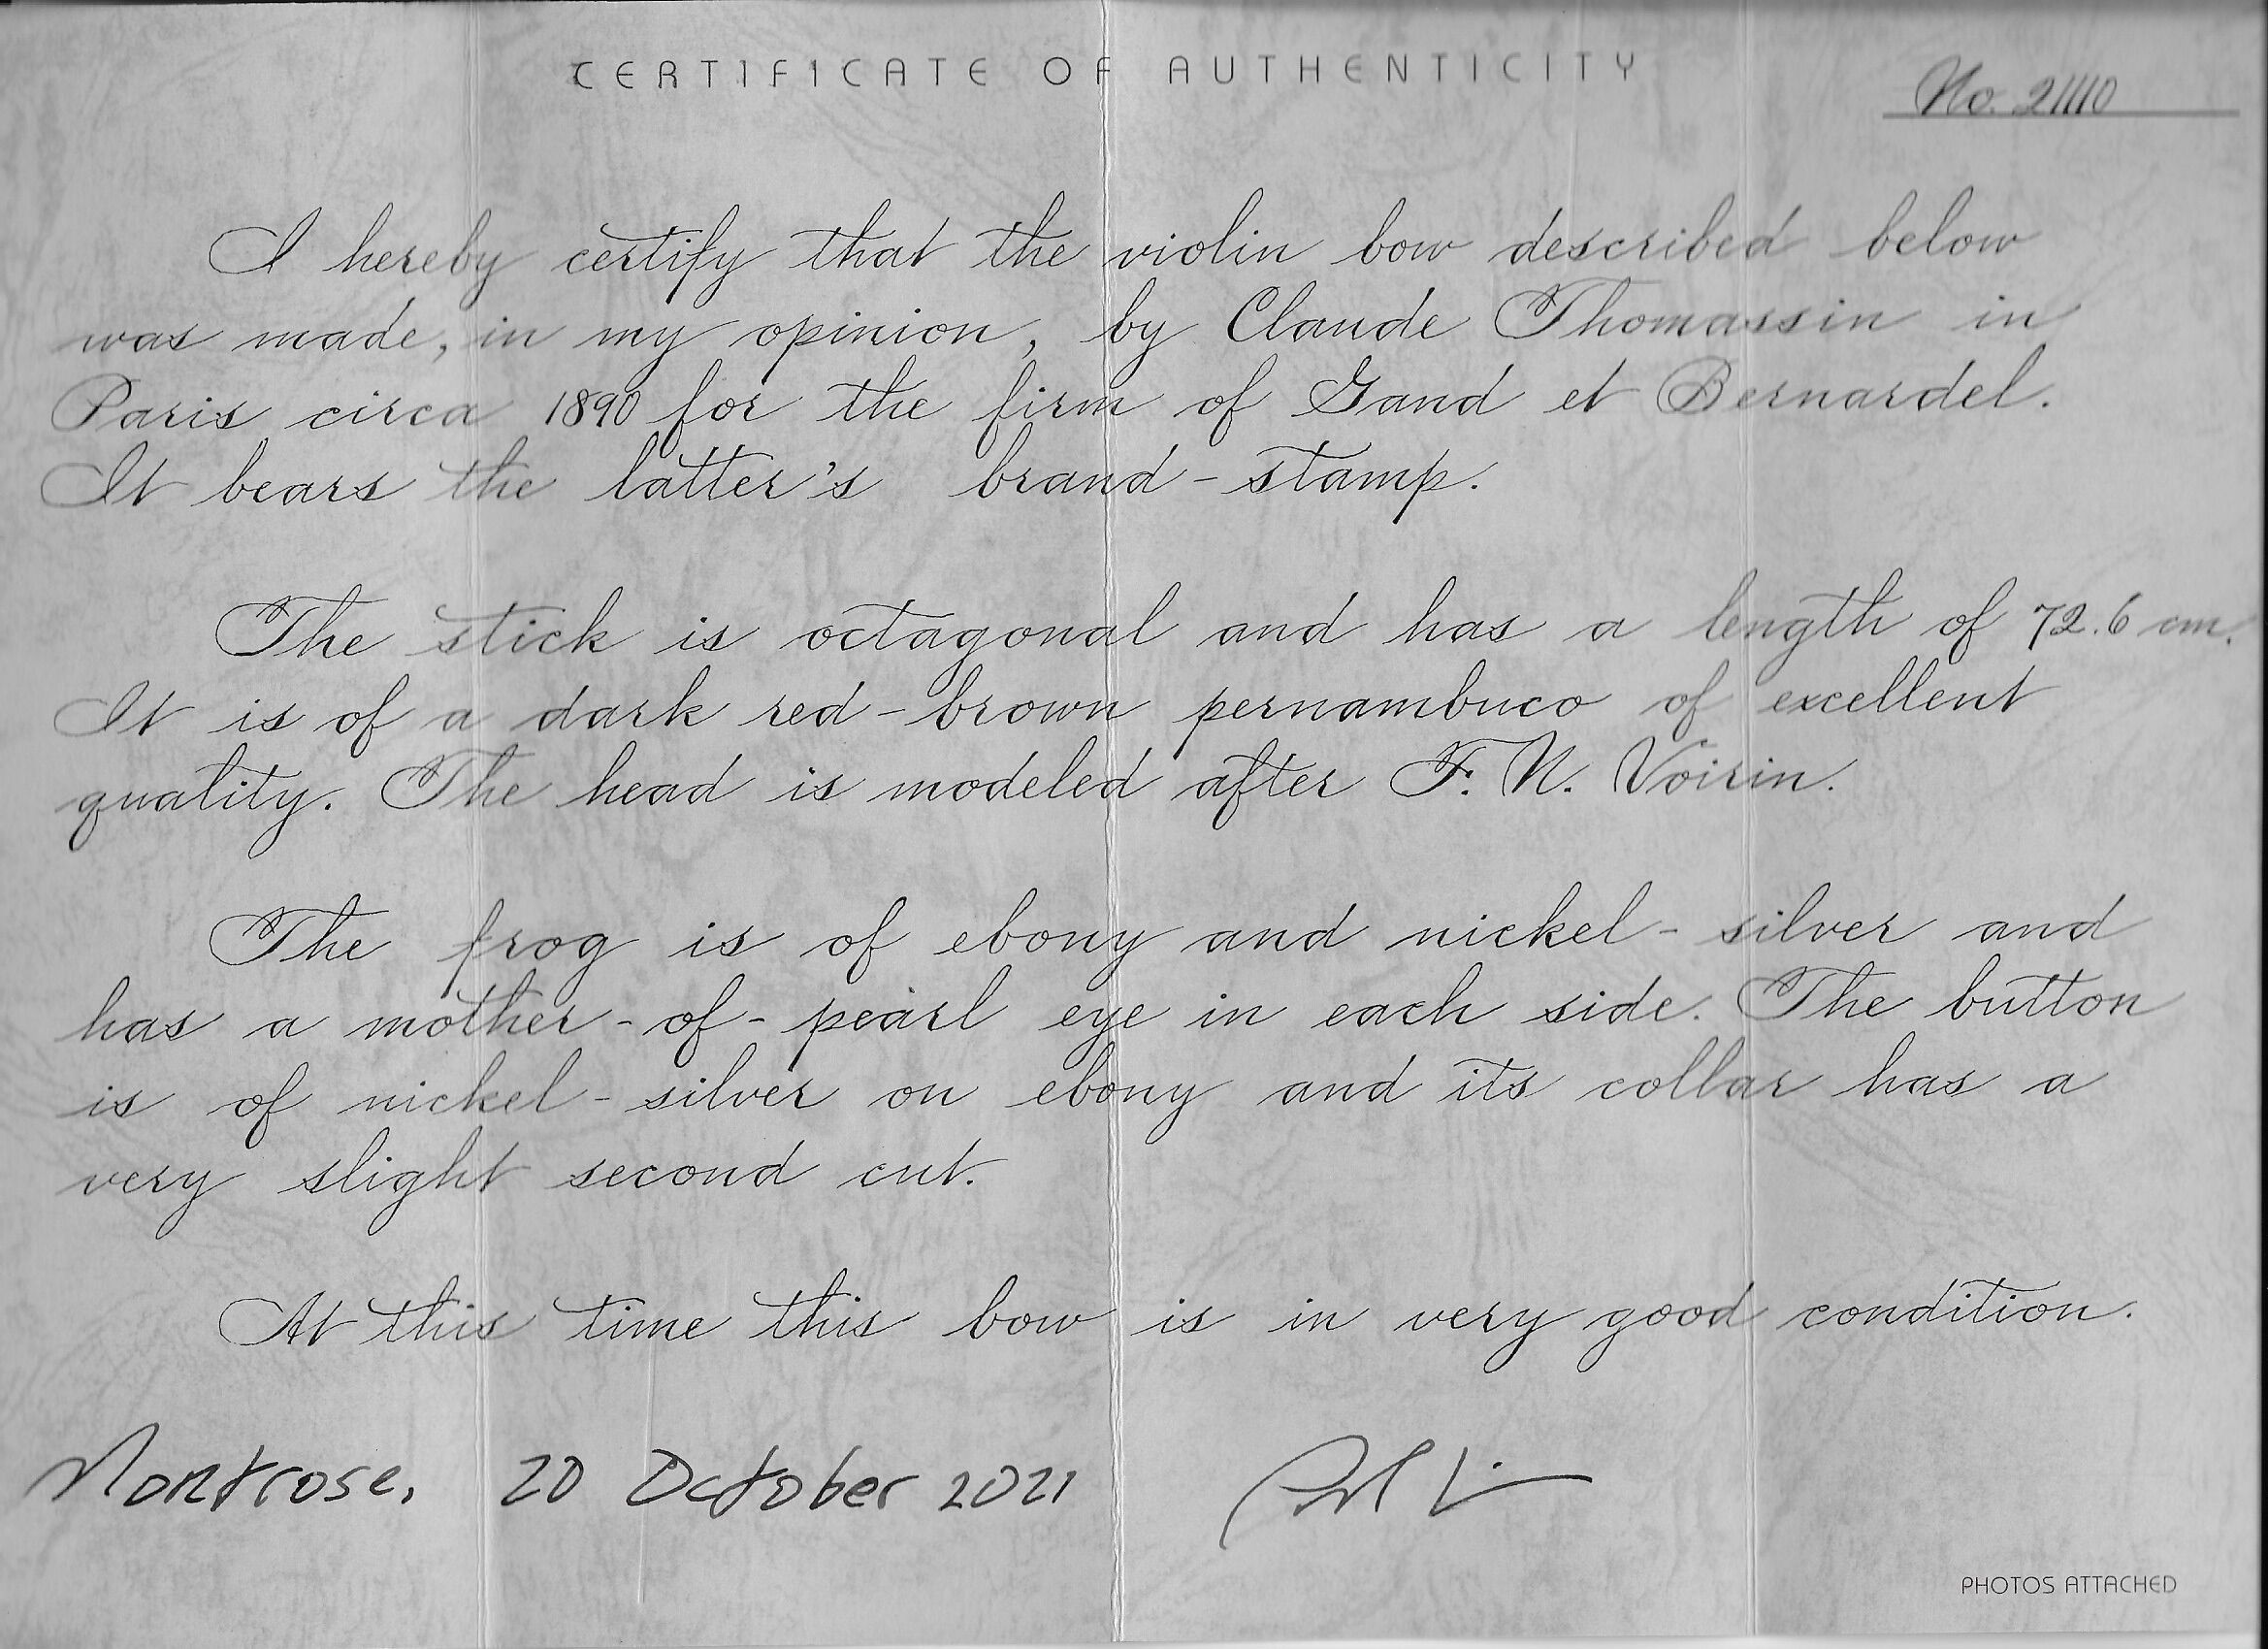 CERTIFICATE OF AUTHENTICITY
No. 21110
I hereby certify that the violin bow described below
was made, in my opinion, by Claude Thomassin in
Paris circa 1890 for the firm of Gand et Bernardel.
It bears the latter's brand-stamp.
The stick is octagonal and has a length of 72.6 cm.
It is of a dark red-brown pernambuco of excellent
quality. The head is modeled after F. N. Voirin.
The frog is of ebony and nickel-silver and
has a mother-of-pearl eye in each side. The button
is of nickel-silver on ebony and its collar has a
very slight second cut.
At this time this bow is in very good condition.
Montrose, 20 October 2021
PHOTOS ATTACHED